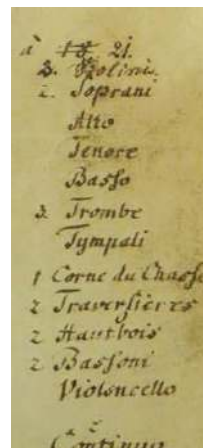 à 18 21.
3. Violini.
2. Soprani
Alto
Tenore
Basso
3. Trombe
Tympali
1 Corne du Chasse
2 Traversieres
2 Hautbois
2 Bassoni
Violoncello
è
Continuo